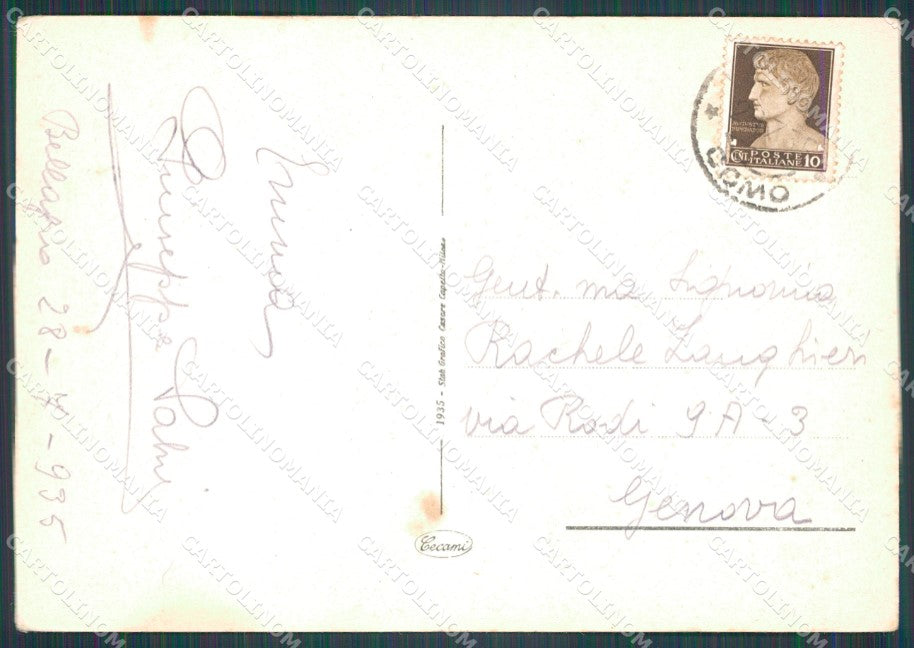 Bellagio 28-7-935
Giuseppe
Emma
1935 - Stab Grafico Cesare Capello-Milano
Cecami
COMO
POSTE
ITALIANE
CENT. 10
Gent. ma Signorina
Rachele Langhieri
via Rodi 9A-3
Genova
CARTOLINOMANIA